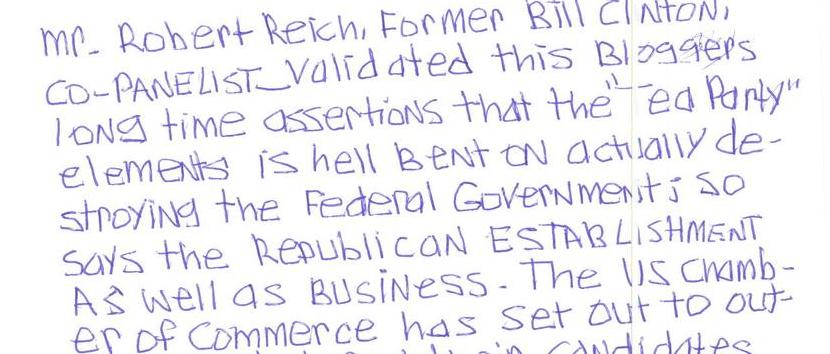 Mr. Robert Reich, Former Bill CLINTON,
CO-PANELIST_Validated this Bloggers
long time assertions that the "Tea Party"
elements is hell BENT ON actually de-
stroying the Federal Government; so
says the Republican ESTABLISHMENT
As well as BUSINESS. The US Chamb-
er of Commerce has set out to out-
candidates